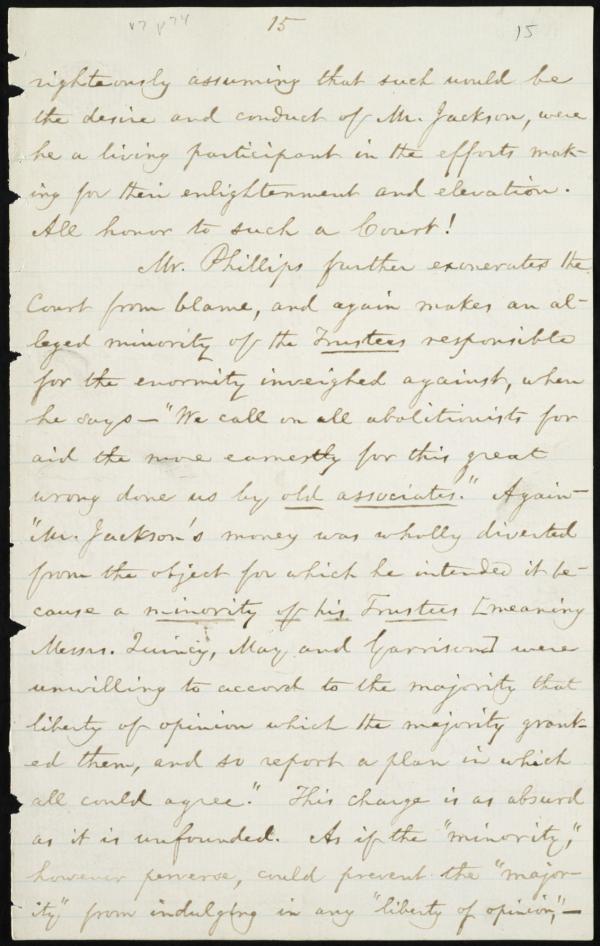 v7 p74 15 15
righteously assuming that such would be
the desire and conduct of Mr. Jackson, were
he a living participant in the efforts mak-
ing for their enlightenment and elevation.
All honor to such a Court!
Mr. Phillips further exonerates the
Court from blame, and again makes an al-
leged minority of the Trustees responsible
for the enormity inveighed against, when
he says—"We call on all abolitionists for
aid the more earnestly for this great
wrong done us by old associates." Again—
"Mr. Jackson's money was wholly diverted
from the object for which he intended it be-
cause a minority of his Trustees [meaning
Messrs. Quincy, May and Garrison] were
unwilling to accord to the majority that
liberty of opinion which the majority grant-
ed them, and so report a plan in which
all could agree." This charge is as absurd
as it is unfounded. As if the "minority,"
however perverse, could prevent the "major-
ity" from indulging in any "liberty of opinion,"—